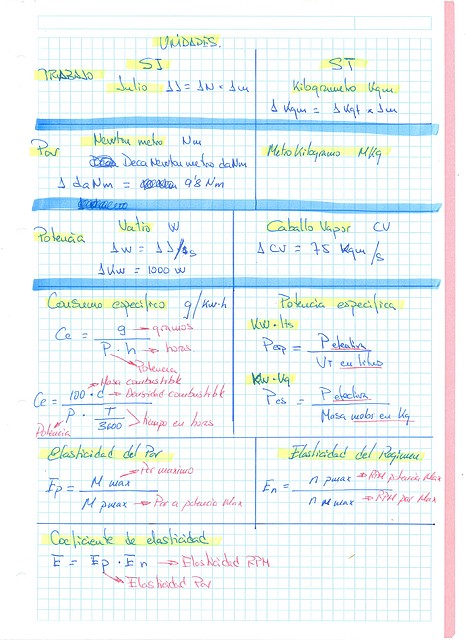 UNIDADES.
SI
ST
TRABAJO
Julio 1J = 1N x 1m
Kilogrametro Kgm
1 Kgm = 1 Kgf x 1m
Par
Newton metro Nm
Deca Newton metro daNm
1 daNm = 9'8 Nm
Metro Kilogramo MKg
Potencia
Vatio W
1 W = 1J/s
1 Kw = 1000 W
Caballo Vapor CV
1 CV = 75 Kgm/s
Consumo especifico g/Kw·h
Ce = g → gramos
P · h → horas
Potencia
Masa combustible
Ce = 100 · d → Densidad combustible
P · T/3600 > tiempo en horas
Potencia
Potencia especifica
KW·lts
Pesp = P efectiva
VT en litros
Kw·Kg
Pes = P efectiva
Masa motos en Kg
Elasticidad del Par
Par maximo
Ep = M max
M pmax → Par a potencia Max
Elasticidad del Regimen
En = n pmax → RPM potencia Max
n M max → RPM par Max
Coeficiente de elasticidad
E = Ep · En → Elasticidad RPM
Elasticidad Par